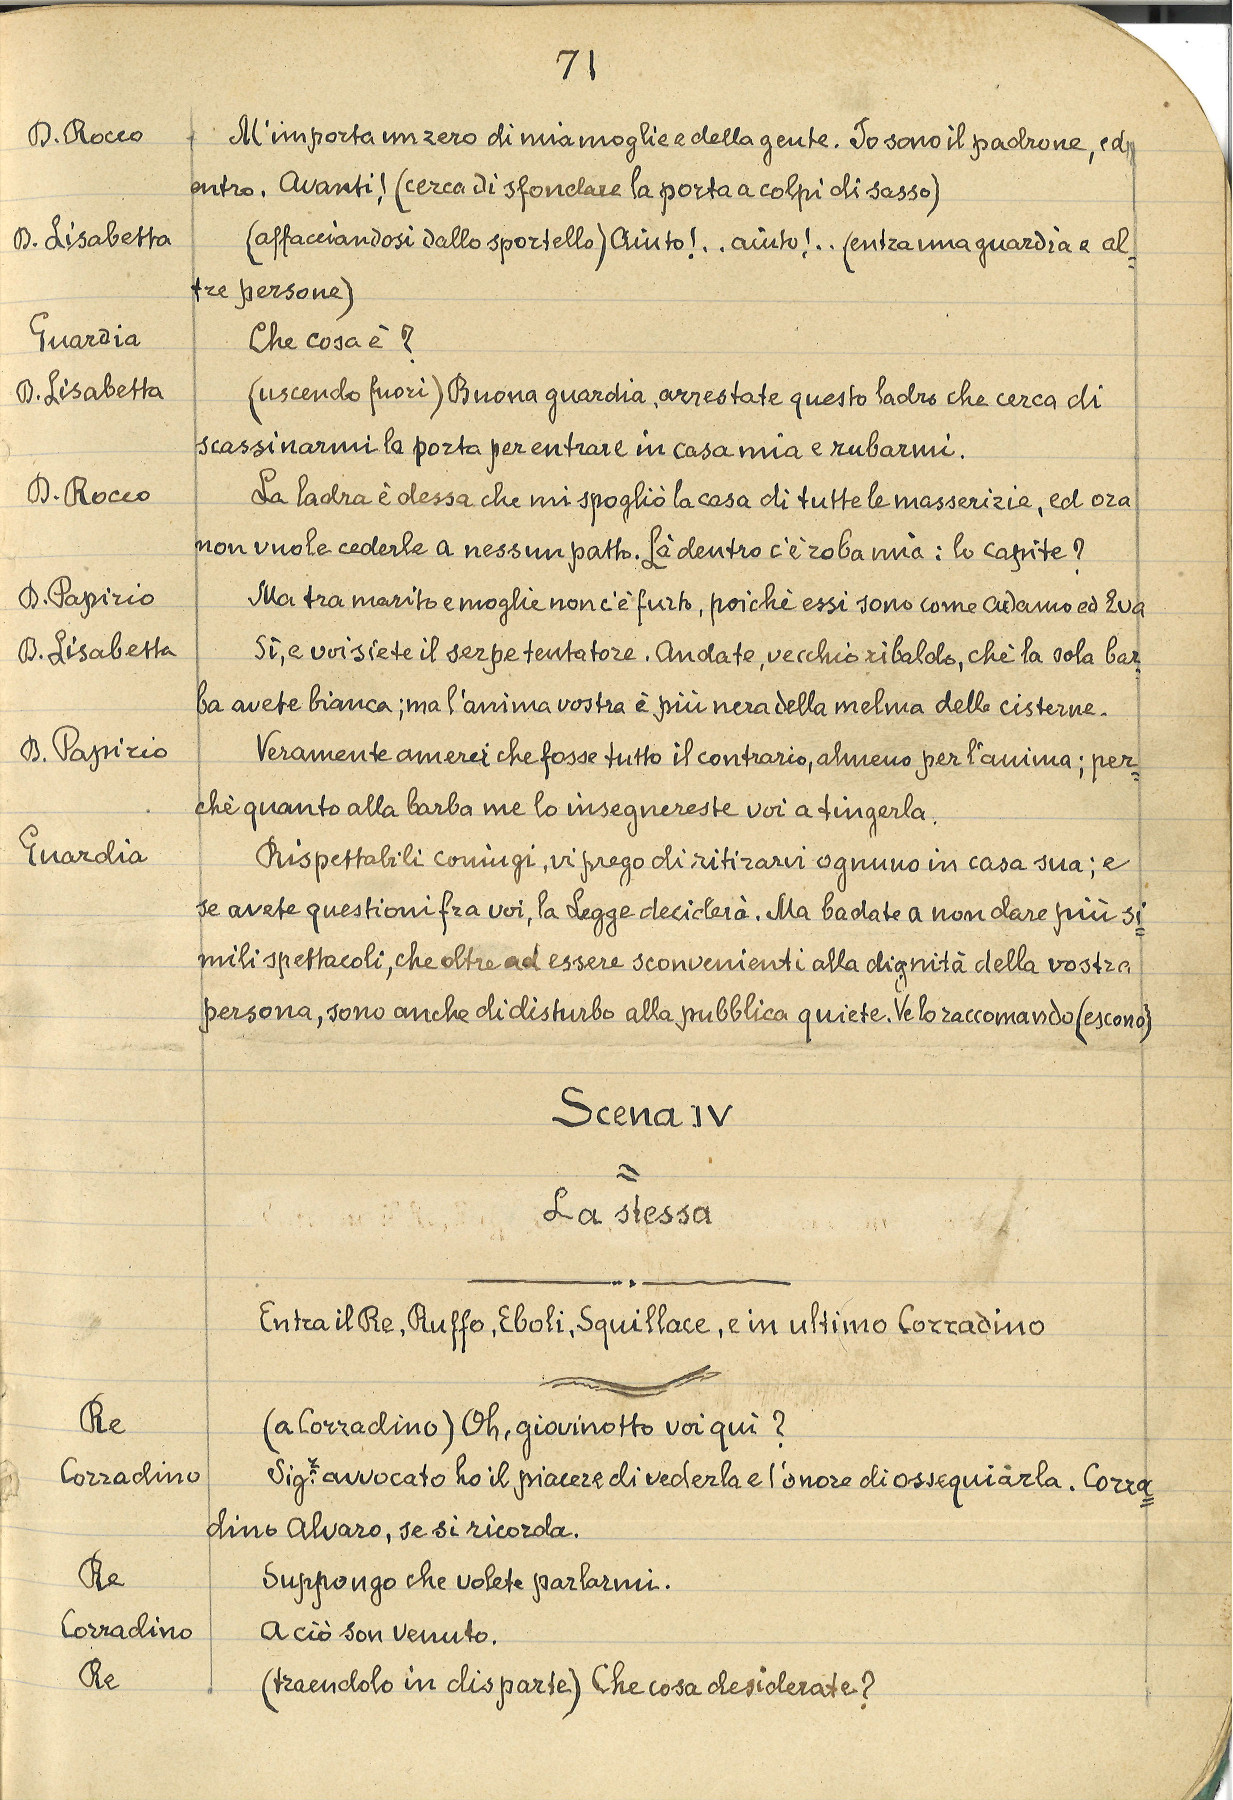 71
D. Rocco M'importa un zero di mia moglie e della gente. Io sono il padrone, ed
entro. Avanti! (cerca di sfondare la porta a colpi di sasso)
D. Lisabetta (affacciandosi dallo sportello) Aiuto!.. aiuto!.. (entra una guardia e al=
tre persone)
Guardia Che cosa è?
D. Lisabetta (uscendo fuori) Buona guardia, arrestate questo ladro che cerca di
scassinarmi la porta per entrare in casa mia e rubarmi.
D. Rocco La ladra è dessa che mi spogliò la casa di tutte le masserizie, ed ora
non vuole cederle a nessun patto. Là dentro c'è roba mia: lo capite?
D. Papirio Ma tra marito e moglie non c'è furto, poichè essi sono come Adamo ed Eva
D. Lisabetta Sì, e voi siete il serpe tentatore. Andate, vecchio ribaldo, chè la sola bar=
ba avete bianca; ma l'anima vostra è più nera della melma delle cisterne.
D. Papirio Veramente amerei che fosse tutto il contrario, almeno per l'anima; per=
chè quanto alla barba me lo insegnereste voi a tingerla.
Guardia Rispettabili coniugi, vi prego di ritirarvi ognuno in casa sua; e
se avete questioni fra voi, la Legge deciderà. Ma badate a non dare più si=
mili spettacoli, che oltre ad essere sconvenienti alla dignità della vostra
persona, sono anche di disturbo alla pubblica quiete. Ve lo raccomando (escono)
Scena IV
=
La stessa
Entra il Re, Ruffo, Eboli, Squillace, e in ultimo Corradino
Re (a Corradino) Oh, giovinotto voi quì?
Corradino Sig.r avvocato ho il piacere di vederla e l'onore di ossequiarla. Corra=
dino Alvaro, se si ricorda.
Re Suppongo che volete parlarmi.
Corradino A ciò son venuto.
Re (traendolo in disparte) Che cosa desiderate?